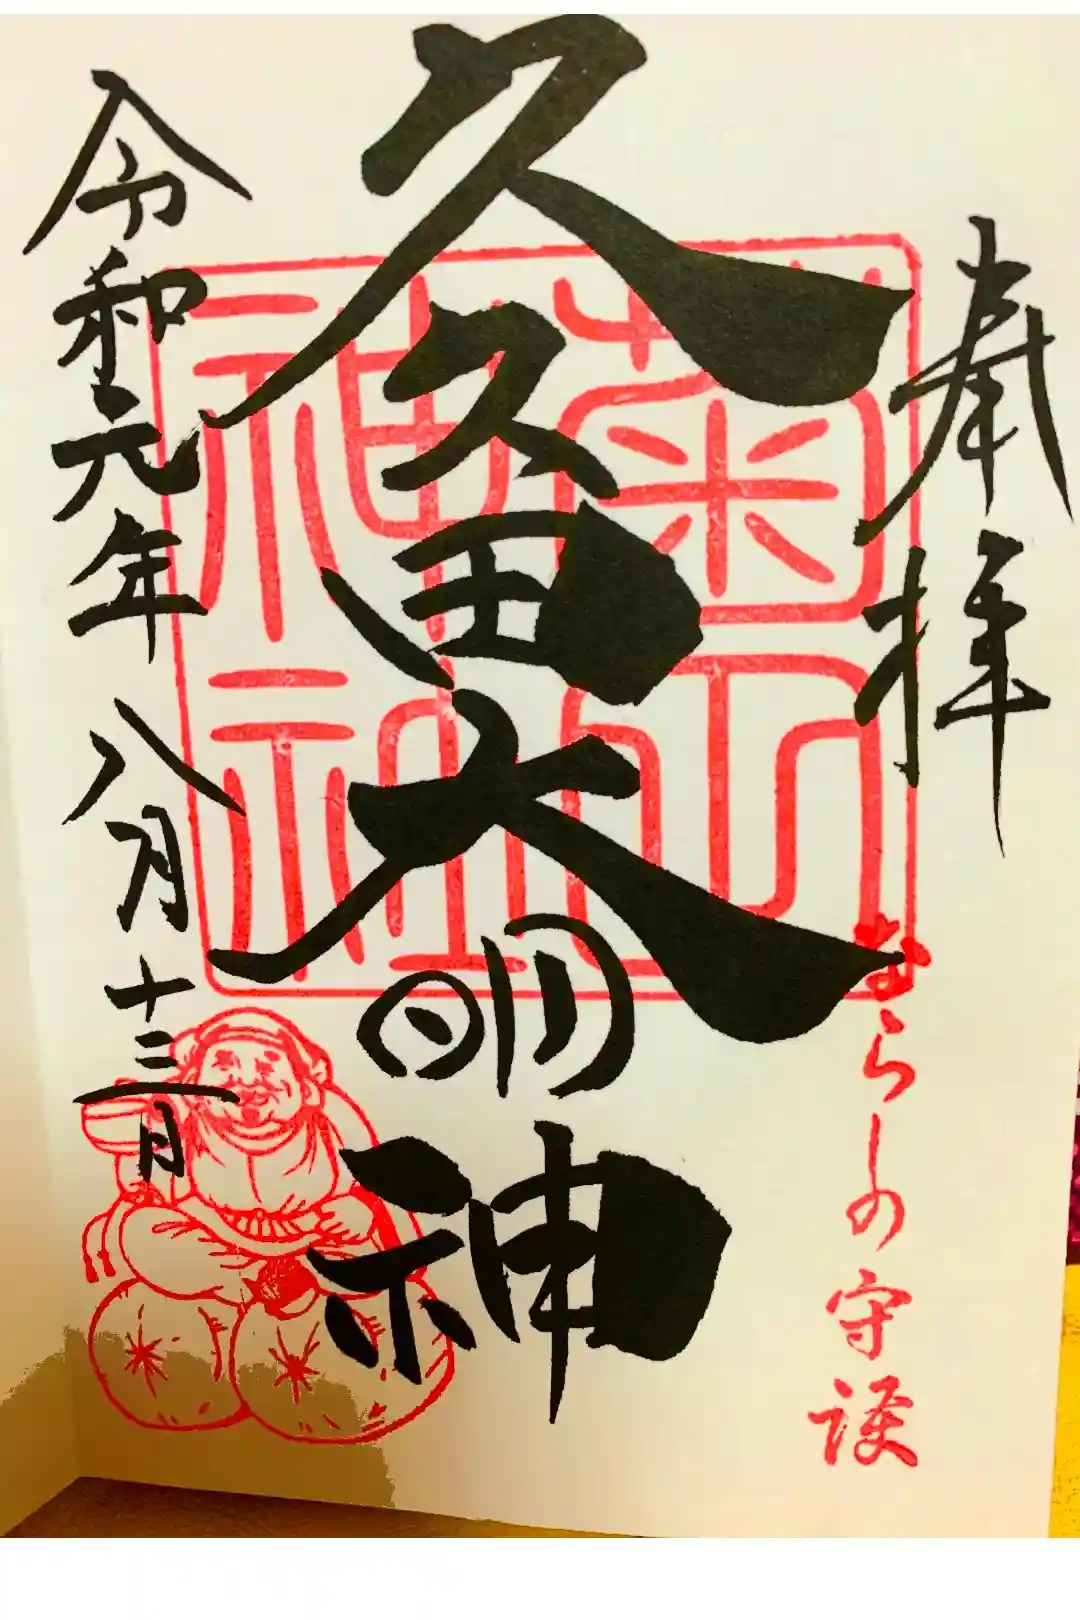 奉拝
ならしの守護
菊田神社
久久田大明神
令和元年八月十三日